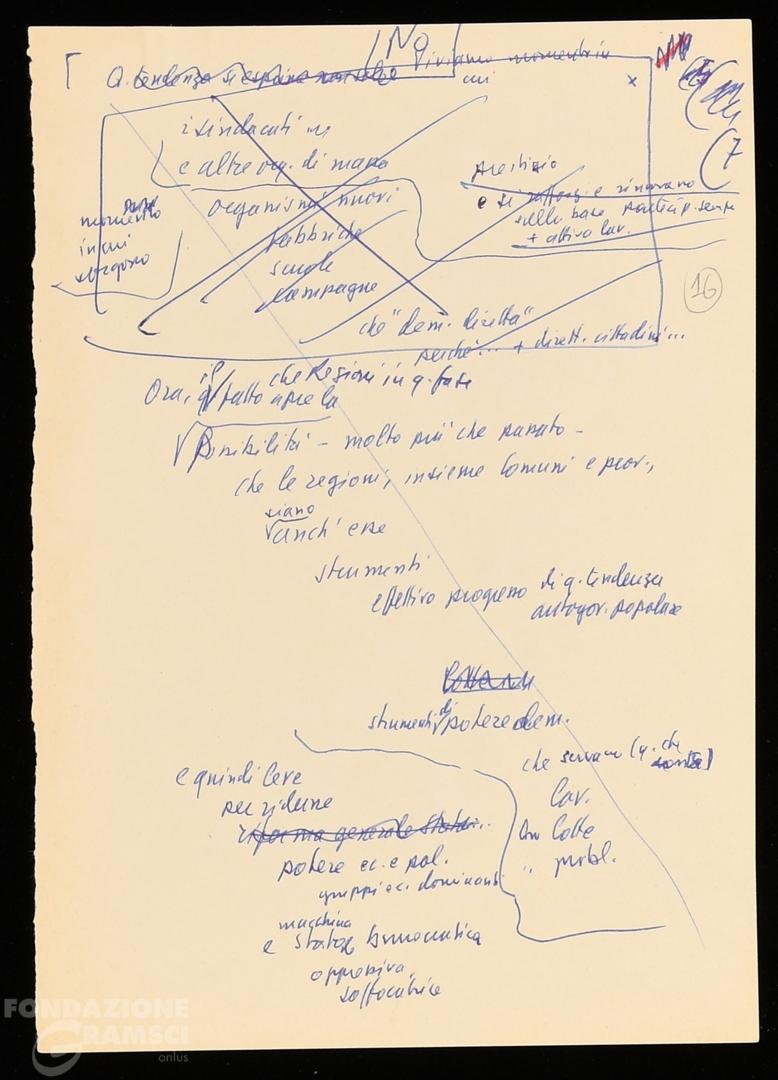 No
Q. tendenza si esprime non solo Viviamo momento in
cui x
i sindacati
e altre org. di massa
organismi nuovi
momento
in cui
sorgono
fabbriche
scuole
campagne
prestigio
e si rafforz. e rinnovano
sulla base particip. sempre
+ attiva lav.
(7
16
che "dem. diretta"
perché... + dirett. cittadini...
Ora, il fatto che Regioni in q. fase
apre la
Possibilità - molto più che passato -
che le regioni, insieme Comuni e prov.,
siano
anch'esse
strumenti
effettivo progresso di q. tendenza
autogov. popolare
strumenti di potere dem.
che servano (q. che
conta)
lav.
loro lotte
" probl.
e quindi leve
per ridurre
riforma generale Stato...
potere ec. e pol.
gruppi ec. dominanti
macchina
e Stato burocratica
oppressiva,
soffocatrice
FONDAZIONE
GRAMSCI
onlus